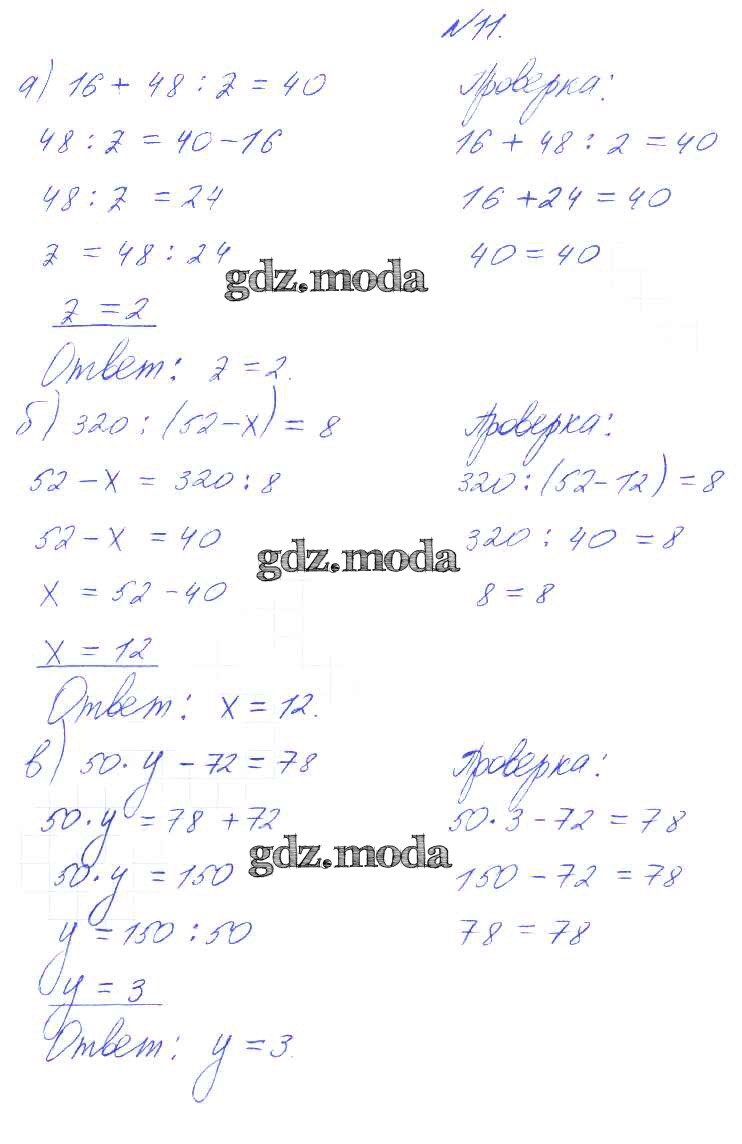 №11.
а) 16 + 48 : z = 40
48 : z = 40 - 16
48 : z = 24
z = 48 : 24
z = 2
Ответ: z = 2.
Проверка:
16 + 48 : 2 = 40
16 + 24 = 40
40 = 40
gdz.moda
б) 320 : (52 - x) = 8
52 - x = 320 : 8
52 - x = 40
x = 52 - 40
x = 12
Ответ: x = 12.
Проверка:
320 : (52 - 12) = 8
320 : 40 = 8
8 = 8
gdz.moda
в) 50 · y - 72 = 78
50 · y = 78 + 72
50 · y = 150
y = 150 : 50
y = 3
Ответ: y = 3.
Проверка:
50 · 3 - 72 = 78
150 - 72 = 78
78 = 78
gdz.moda